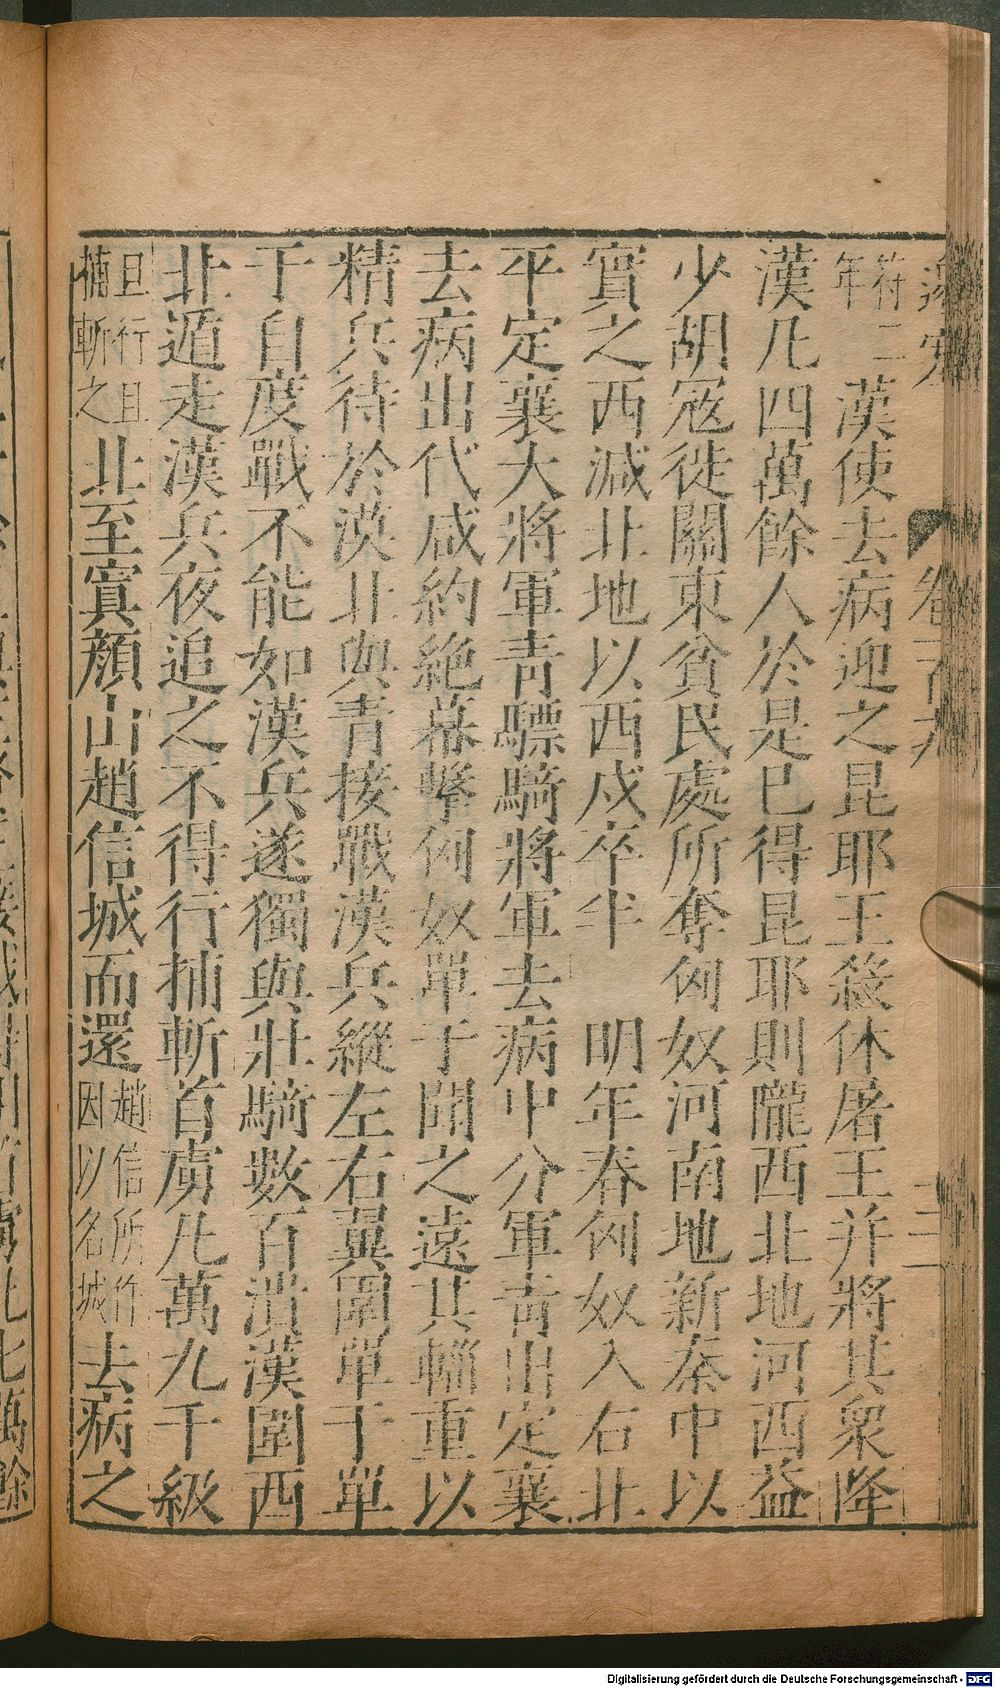 符二年漢使去病迎之昆耶王殺休屠王并將其衆降
漢凡四萬餘人於是已得昆耶則隴西北地河西益
少胡冦徙關東貧民處所奪匈奴河南地新秦中以
實之西減北地以西戍卒半　明年春匈奴入右北
平定襄大將軍青驃騎將軍去病中分軍青出定襄
去病出代咸約絶幕擊匈奴單于聞之遠其輜重以
精兵待於漠北與青接戰漢兵縱左右翼圍單于單
于自度戰不能如漢兵遂獨與壯騎數百潰漢圍西
北遁走漢兵夜追之不得行捕斬首虜凡萬九千級
且行且捕斬之北至寘顔山趙信城而還趙信所作因以名城去病之
Digitalisierung gefördert durch die Deutsche Forschungsgemeinschaft - DFG